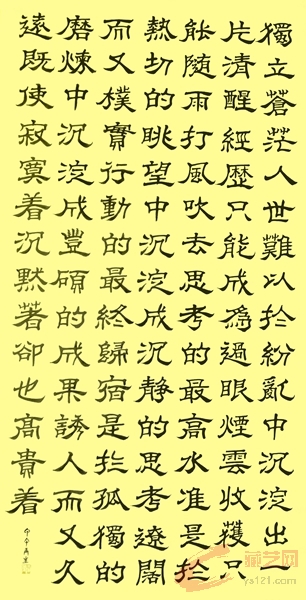 獨立蒼茫人世難以於紛亂中沉淀出一
片清醒經歷只能成為過眼煙雲收穫只
能隨雨打風吹去思考的最高水准是於
熱切的眺望中沉淀成沉靜的思考遼闊
而又樸實行動的最終歸宿是於孤獨的
磨煉中沉淀成豐碩的成果誘人而又久
遠既使寂寞着沉默著卻也高貴着
藏艺网
ys121.com